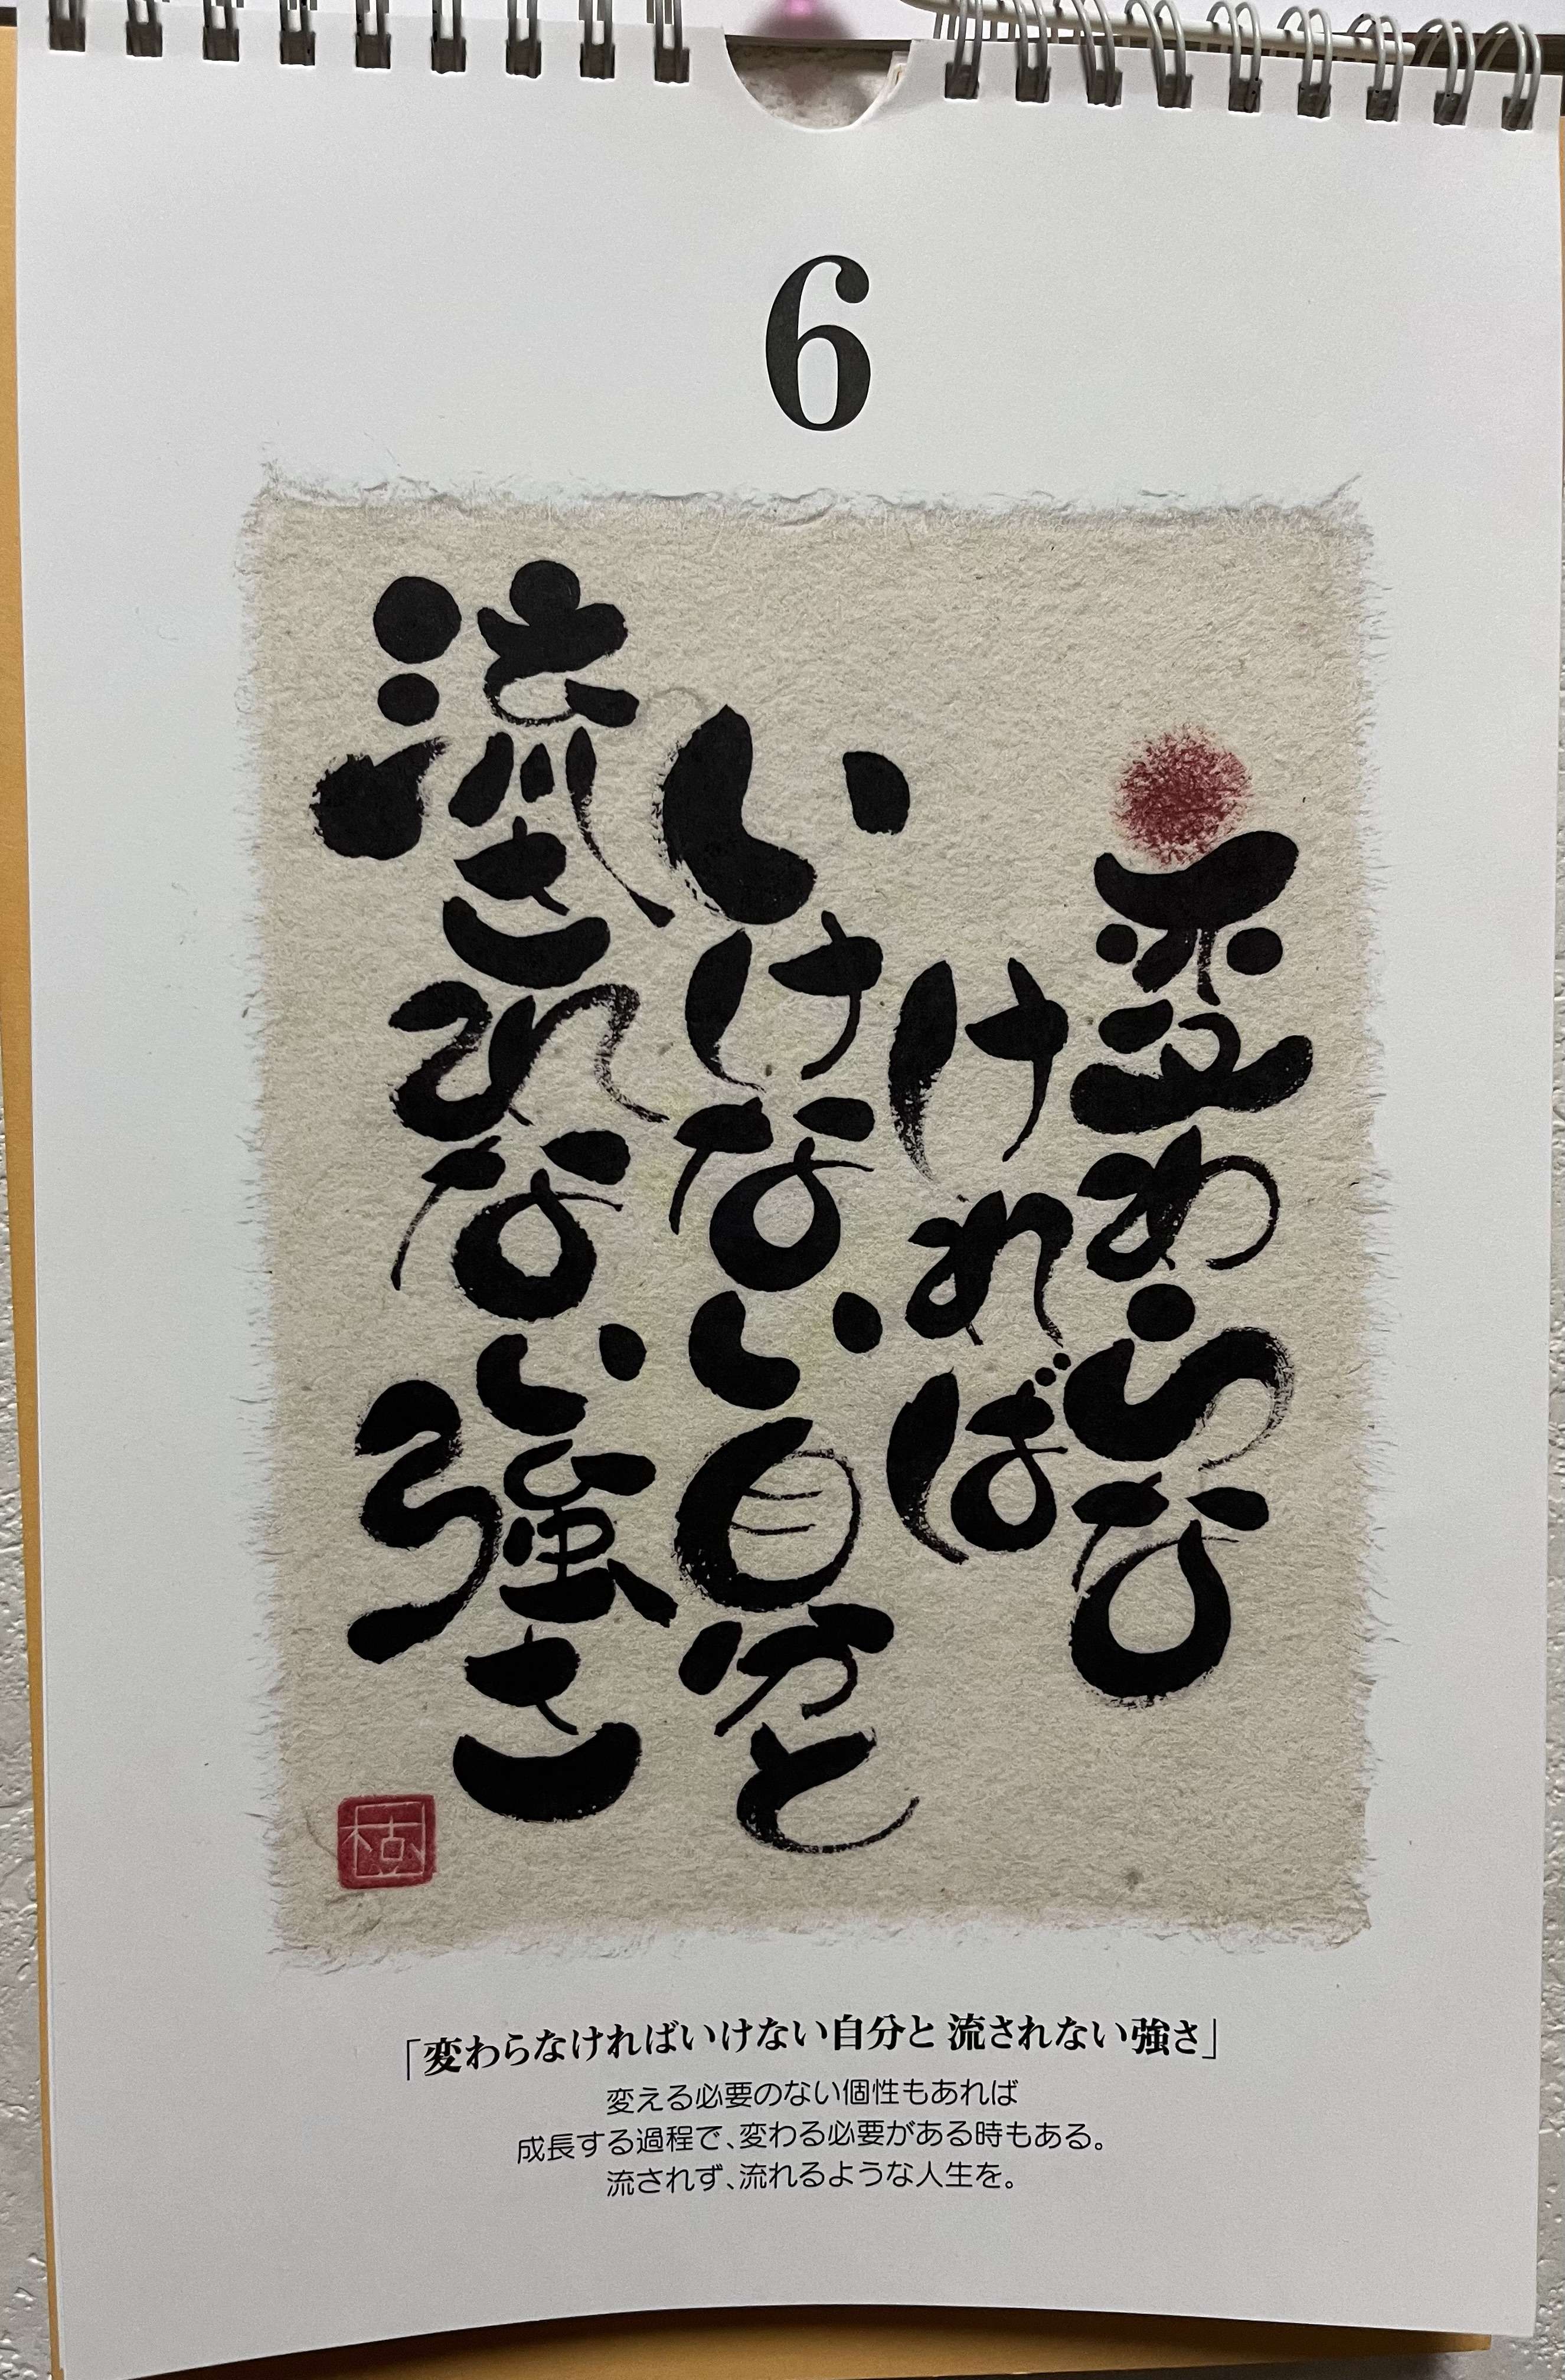 6
変わらな
ければ
いけない自分と
流されない強さ
「変わらなければいけない自分と 流されない強さ」
変える必要のない個性もあれば
成長する過程で、変わる必要がある時もある。
流されず、流れるような人生を。